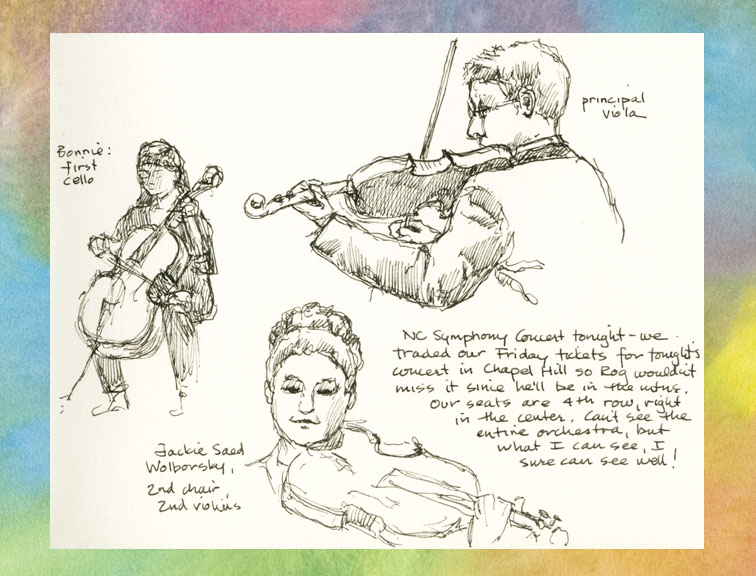 principal
viola
Bonnie:
first
cello
NC Symphony Concert tonight - we
traded our Friday tickets for tonight's
concert in Chapel Hill so Rog wouldn't
miss it since he'll be in the mtns.
Our seats are 4th row, right
in the center. Can't see the
entire orchestra, but
what I can see, I
sure can see well!
Jackie Saed
Wolborsky,
2nd chair,
2nd violins